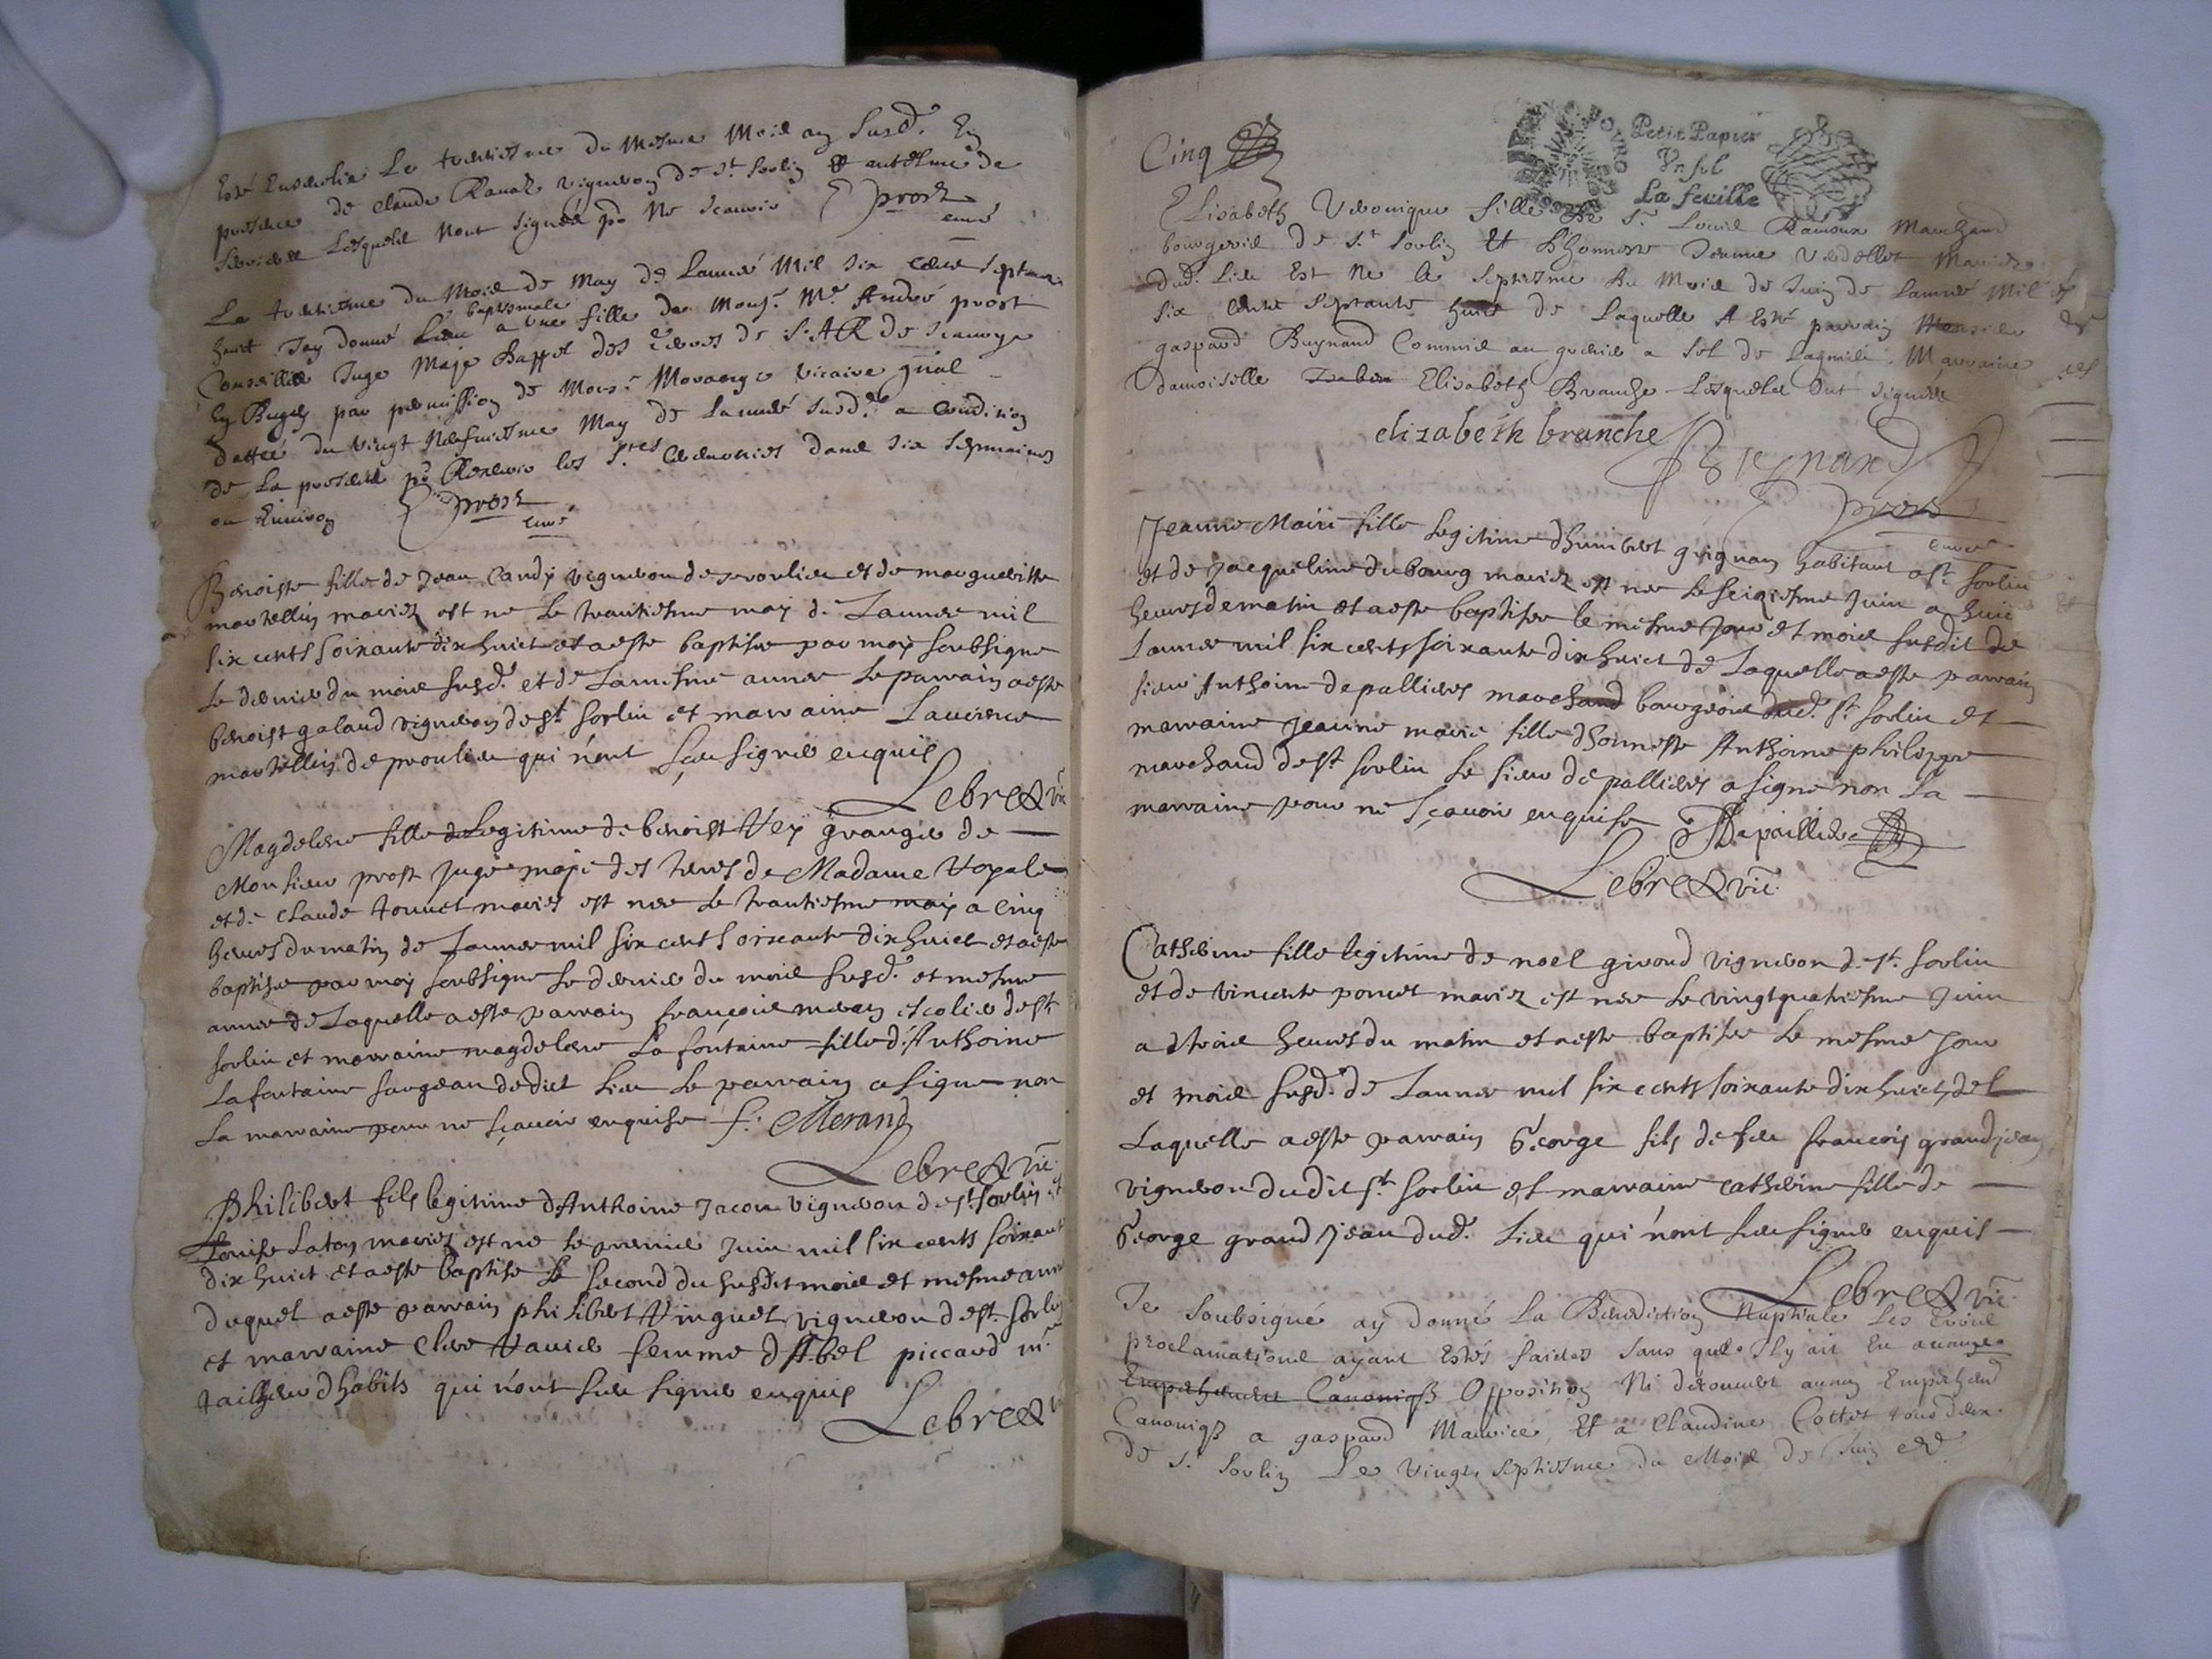 Esté Ensevelie Le trentiesme du Mesme Mois an susd. En
presence de Claude Ravat vigneron de St Sorlin Et antelme de
Lesquels n'ont signéz pr Ne scavoir Prost
curé
Le trentiesme du Mois de May de L'année Mil six cents septante
huict Jay donné L'eau baptismale a une fille de Monsr Me André prost
Conseillier Juge Maje D'appel des Terres de S. A. R. de Scavoye
En Bugey par permission de Monsr vicaire gnal
Dattée du vingt Neufviesme May de L'année susd. a condition
de La presenter pr Recevoir les Stes Ceremonies dans six sepmaines
ou Environ Prost
curé
Benoiste fille de Jean Candy vigneron de proulieu et de margueritte
martellin mariez est née Le trantiesme may de L'année mil
six cents soixante dix huict et a esté baptisée par moy soubsigné
Le dernier du mois susd. et de La mesme année Le parrain a esté
benoist galand vigneron de st sorlin et marraine Laurence
martellin de proulieu qui n'ont sçeu signer enquis
Lebreux vic
Magdelene fille Legitime de benoist Vey granger de
Monsieur prost juge maje des terres de Madame Royale
et de claude mariez est née Le trantiesme may a cinq
heures du matin de L'année mil six cents soixante dix huict et a esté
baptisée par moy soubsigné Le dernier du mois susd. et mesme
année de Laquelle a esté parrain françois meran escolier de st
sorlin et marraine magdelene Lafontaine fille d'Anthoine
Lafontaine dudict Lieu Le parrain a signé non
La marraine pour ne sçavoir enquise f. Merand
Lebreux vic.
Philibert fils legitime d'Anthoine Jacon vigneron de st sorlin et
Louise Laton mariez est né le premier Juin mil six cents soixante
dix huict et a esté baptisé Le second du susdit mois et mesme année
duquel a esté parrain philibert Vinguet vigneron de st. sorlin
et marraine femme d'Abel piccard mr
tailleur d'habits qui n'ont sceu signer enquis
Lebreux vic
Cinq
Petit Papier
Un sol
La feuille
Elisabeth Veronique fille de Sr Louis Ramoux Marchand
bourgeois de St Sorlin Et D'honneste Jeanne Verdellet Mariez
dud. Lieu Est Née le septiesme du Mois de Juin de L'année Mil
six cents septante huict de Laquelle A Esté parrain Monsieur
gaspard Buynand Commis au grenier a sel de Lagnieu. Marraine
damoiselle Elisabeth Branche Lesquels Ont signéz
elizabeth branche Buynand
Prost
curé
Jeanne Marie fille Legitime d'humbert grignan habitant a st sorlin
et de Jacqueline dubourg mariez est née Le seiziesme Juin a huict
heures de matin et a esté baptisée le mesme jour et mois susdit de
L'année mil six cents soixante dix huict de Laquelle a esté parrain
sieur Anthoine depallieres marchand bourgeois dud. st sorlin et
marraine Jeanne marie fille d'honneste Anthoine philippe
marchand de st sorlin Le sieur depallieres a signé non La
marraine pour ne sçavoir enquise A Depaillieres
Lebreux vic.
Catherine fille legitime de noel giroud vigneron de st. sorlin
et de vincente poncet mariez est née Le vingt quatriesme Juin
a trois heures du matin et a esté baptisée Le mesme jour
et mois susd. de L'année mil six cents soixante dix huict, de
Laquelle a esté parrain George fils de feu françois grandjean
vigneron dudit st sorlin et marraine catherine fille de
George grand jean dud. Lieu qui n'ont sceu signer enquis
Lebreux vic.
Je Soubsigné ay donné La Benediction Nuptiale Les trois
proclamations ayant Estés faictes sans que s'y ait Eu aucune
Empechement Canoniq Opposition Ni decouvert aucun Empechemt
Canoniq a gaspard Maurice, Et a Claudine Cottet tous deux
de St Sorlin Le Vingt septiesme du Mois de Juin